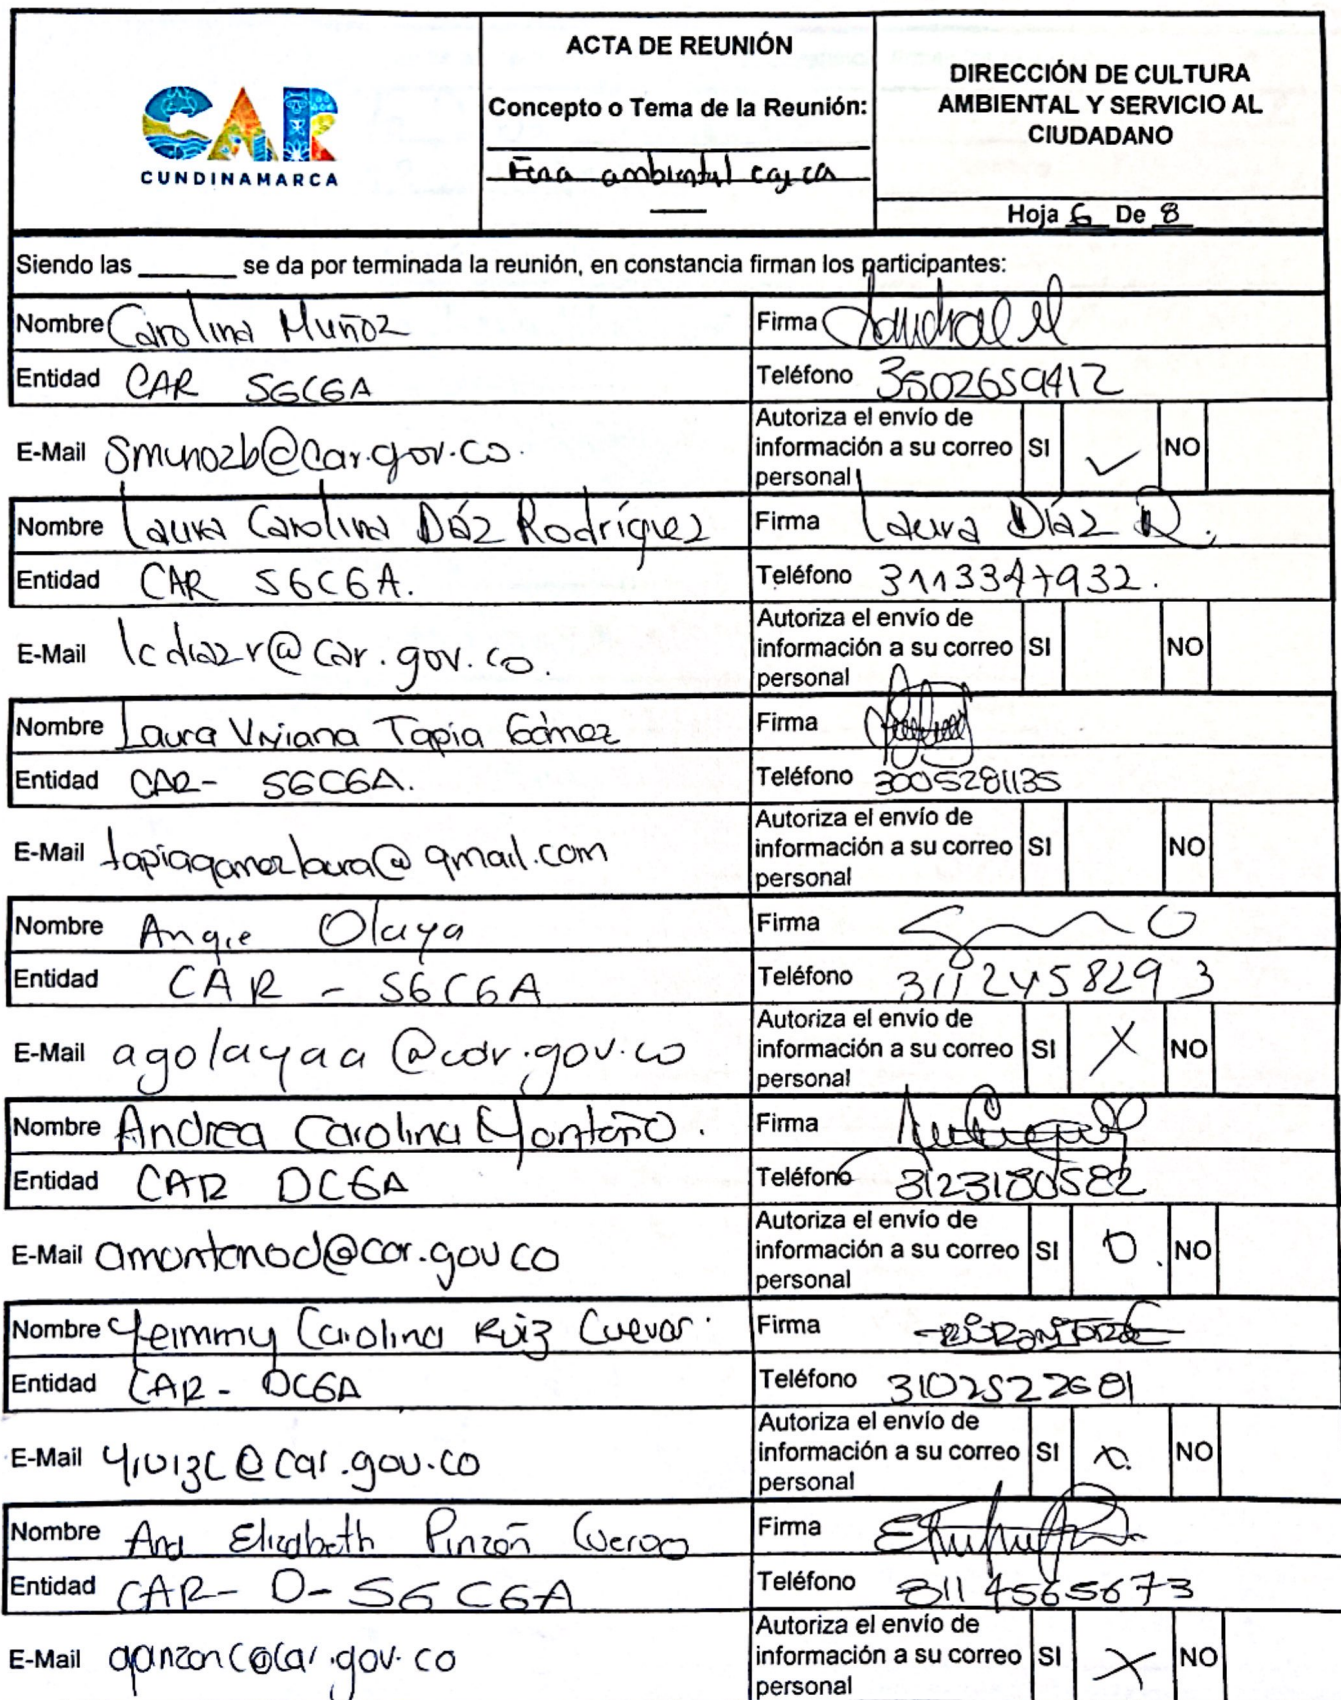 CAR
CUNDINAMARCA
ACTA DE REUNIÓN
Concepto o Tema de la Reunión:
Feria ambiental cajica
DIRECCIÓN DE CULTURA
AMBIENTAL Y SERVICIO AL
CIUDADANO
Hoja 6 De 8
Siendo las ______ se da por terminada la reunión, en constancia firman los participantes:
Nombre Carolina Muñoz Firma
Entidad CAR SGCGA Teléfono 3502659412
E-Mail smunozb@car.gov.co. Autoriza el envío de información a su correo personal SI ✓ NO
Nombre Laura Carolina Díaz Rodríguez Firma Laura Díaz R.
Entidad CAR SGCGA. Teléfono 3113347932.
E-Mail lcdiazr@car.gov.co. Autoriza el envío de información a su correo personal SI NO
Nombre Laura Viviana Tapia Gómez Firma
Entidad CAR- SGCGA. Teléfono 3005281135
E-Mail tapiagomezlaura@gmail.com Autoriza el envío de información a su correo personal SI NO
Nombre Angie Olaya Firma
Entidad CAR - SGCGA Teléfono 3112458293
E-Mail agolayaa@car.gov.co Autoriza el envío de información a su correo personal SI X NO
Nombre Andrea Carolina Montaño. Firma
Entidad CAR DCGA Teléfono 3123180582
E-Mail amontanod@car.gov co Autoriza el envío de información a su correo personal SI NO
Nombre Yeimmy Carolina Ruiz Cuevas. Firma
Entidad CAR- DCGA Teléfono 3102522681
E-Mail yruizc@car.gov.co Autoriza el envío de información a su correo personal SI x NO
Nombre Ana Elizabeth Pinzón Firma
Entidad CAR- D- SGCGA Teléfono 3114565673
E-Mail apinzonc@car.gov.co Autoriza el envío de información a su correo personal SI X NO